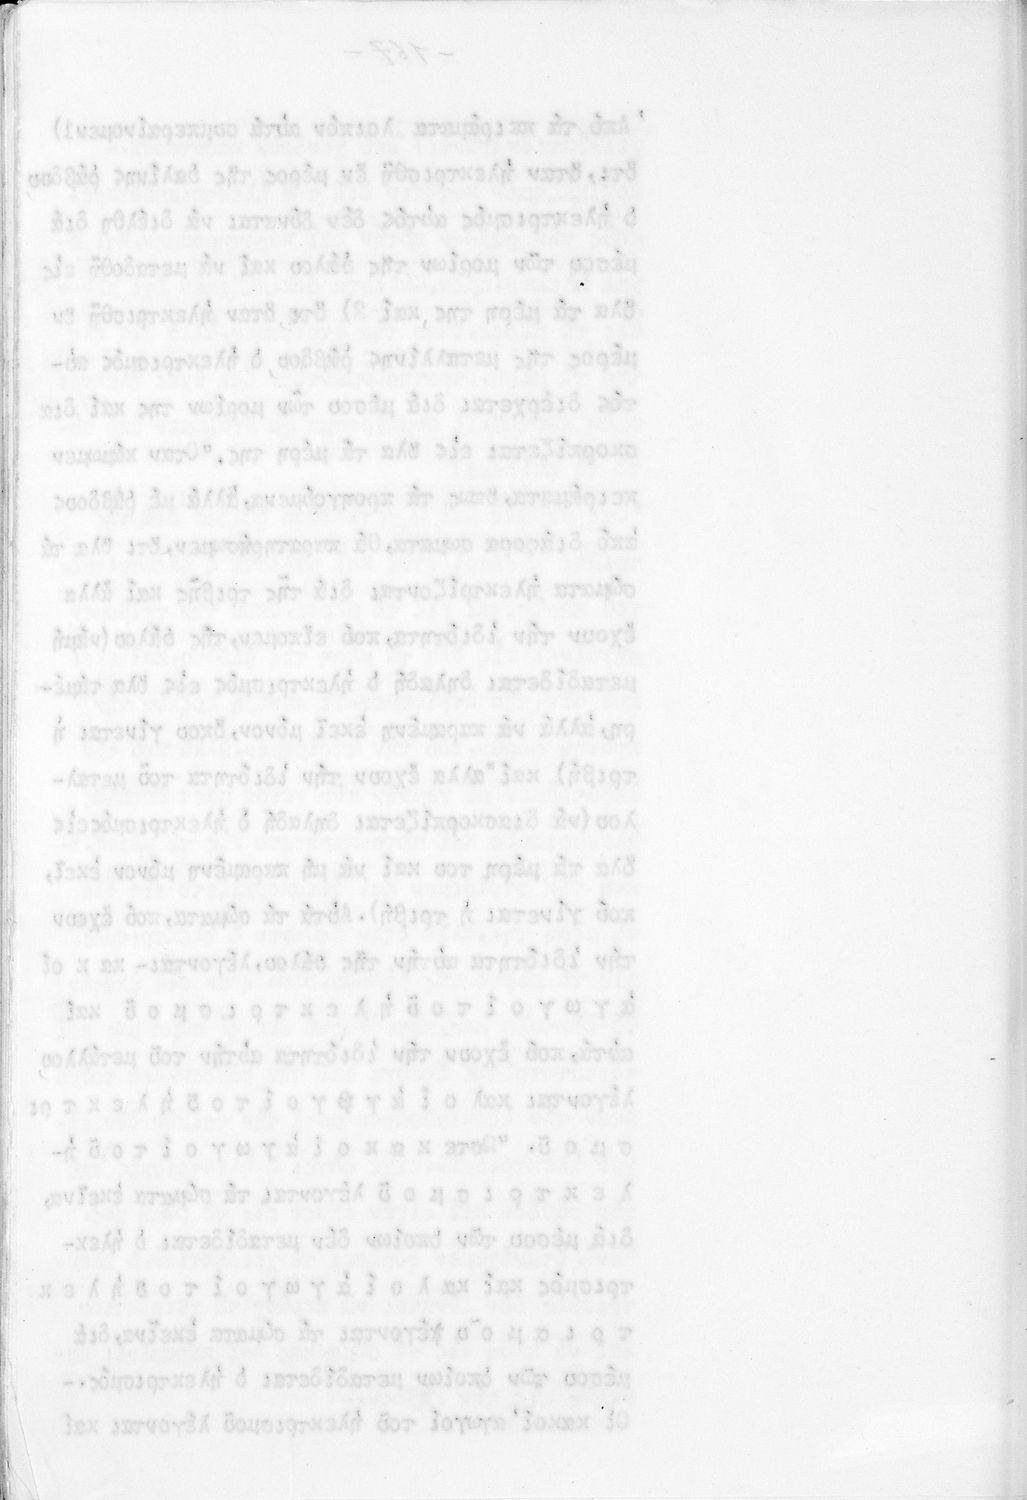 -167-
Ἀπό τά πειράματα λοιπόν αὐτά συμπεραίνομεν1)
ὅτι,ὅταν ἠλεκτρισθῇ ἕν μέρος τῆς ὑαλίνης ράβδου
ὁ ἠλεκτρισμός αὐτός δέν δύναται νά διέλθῃ διά
μέσου τῶν μορίων τῆς ὑάλου καί νά μεταδοθῇ εἰς
ὅλα τά μέρη της,καί 2) ὅτι,ὅταν ἠλεκτρισθῇ ἕν
μέρος τῆς μεταλλίνης ράβδου,ὁ ἠλεκτρισμός αὐ-
τός διέρχεται διά μέσου τῶν μορίων της καί δια
σκορπίζεται εἰς ὅλα τά μέρη της."Οταν κάμωμεν
πειράματα,ὅπως τά προηγούμενα,ἀλλά μέ ράβδους
ἀπό διάφορα σωματα,θά παρατηρήσωμεν,ὅτι ὅλα τά
σώματα ἠλεκτρίζονται διά τῆς τριβῆς καί ἄλλα
ἔχουν τήν ἰδιότητα,πού εἴπομεν,τῆς ὑάλου(νάμή
μεταδίδεται δηλαδή ὁ ἠλεκτρισμός εἰς ὅλα τάμέ-
ρη,ἀλλά νά παραμένη ἐκεῖ μόνον,ὅπου γίνεται ἡ
τριβή) καί "αλλα ἔχουν τήν ἰδιότητα τοῦ μεταλ-
λου(νά διασκορπίζεται δηλαδή ὁ ἠλεκτρισμόςεἰς
ὅλα τά μέρη του καί νά μή παραμένη μόνον ἐκεῖ,
πού γίνεται ἡ τριβή).Αὐτά τά σώματα,πού ἔχουν
τήν ἰδιότητα αὐτήν τῆς ὑάλου,λέγονται- κα κ οί
ἀ γ ω γ ο ί τ ο ῦ ἠ λ ε κ τ ρ ι σ μ ο ῦ καί
αὐτά,πού ἔχουν τήν ἰδιότητα αὐτήν τοῦ μετάλλου
λέγονται καλ ο ί ἀ γ ω γ ο ί τ ο ῦ ἠ λ ε κ τ ρι
σ μ ο ῦ. "Ωστε κ α κ ο ί ἀ γ ω γ ο ί τ ο ῦ ἠ-
λ ε κ τ ρ ι σ μ ο ῦ λέγονται τά σώματα ἐκεῖνα,
διά μέσου τῶν ὁποίων δέν μεταδίδεται ὁ ἠλεκ-
τρισμός καί κα λ ο ί ἀ γ ω γ ο ί τ ο ῦ ἠ λ ε κ
τ ρ ι σ μ ο ῦ λέγονται τά σώματα ἐκεῖνα,διά
μέσου τῶν ὁποίων μεταδίδεται ὁ ἠλεκτρισμός.-
Οἱ κακοί ἀγωγοί τοῦ ἠλεκτρισμοῦ λέγονται καί